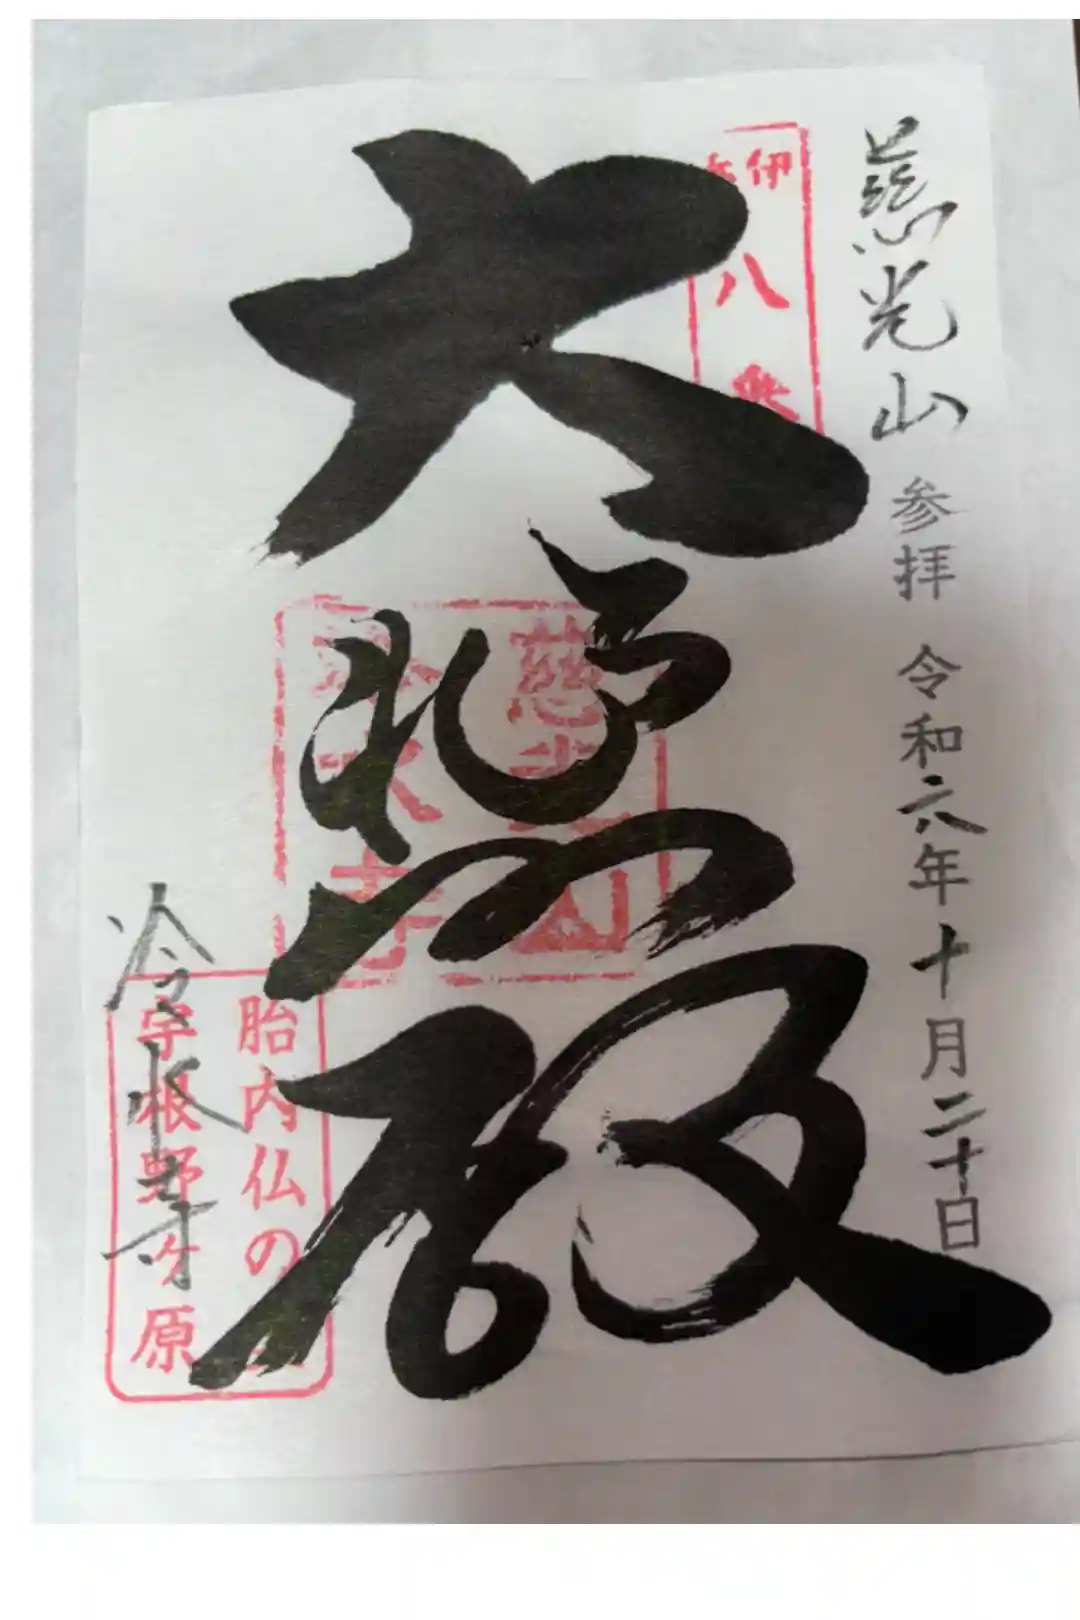 慈光山 参拝 令和六年十月二十日
伊
八
大悲殿
慈光山
冷水寺
冷水寺
胎内仏の
宇根野ヶ原